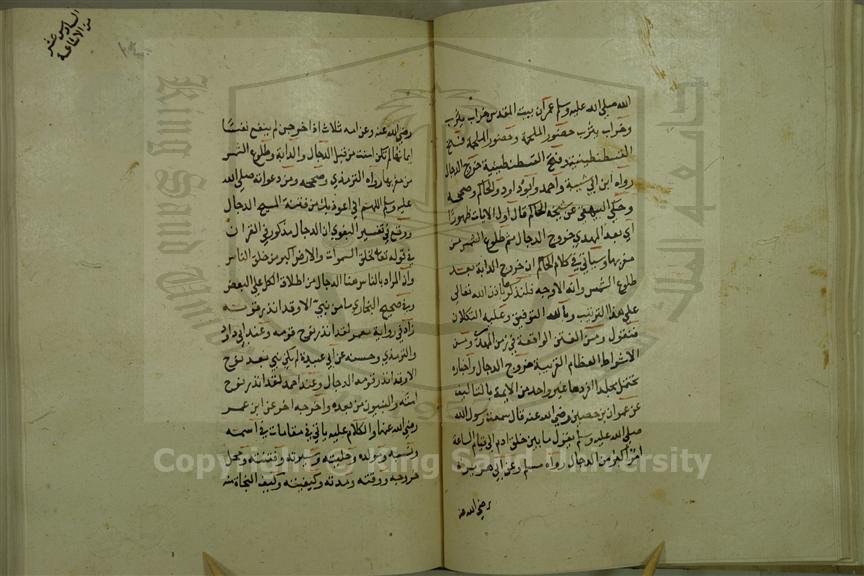 الله صلى الله عليه وسلم عمران بيت المقدس خراب يثرب
وخراب يثرب حضور الملحمة وحضور الملحمة فتح
القسطنطينية وفتح القسطنطينية خروج الدجال
رواه ابن ابي شيبة واحمد وابوداود والحاكم وصححه
وحكى البيهقي عن شيخه الحاكم قال اول الايات ظهورا
اي بعد المهدي خروج الدجال ثم طلوع الشمس من
مغربها وسياتي في كلام الحاكم ان خروج الدابة بعد
طلوع الشمس وانه الاوجه فلنذكرها باذن الله تعالى
على هذا الترتيب وبالله التوفيق وعليه التكلان
فنقول ومن الفتن الواقعة في زمن المهدي ومن
الاشراط العظام القريبة خروج الدجال واخباره
تحتمل مجلدا افردها غير واحد من الايمة بالتاليف
عن عمران بن حصين رضي الله عنه قال سمعت رسول الله
صلى الله عليه وسلم يقول ما بين خلق ادم الى قيام الساعة
امر اكبر من الدجال رواه مسلم وعن ابي هريرة
رضي الله عنه
السادس عشر
من الاشاعة
رضي الله عنه وعن امه ثلاث اذا خرجن لم ينفع نفسا
ايمانها لم تكن امنت من قبل الدجال والدابة وطلوع الشمس
من مغربها رواه الترمذي وصححه ومن دعواته صلى الله
عليه وسلم اللهم اني اعوذ بك من فتنة المسيح الدجال
ووقع في تفسير البغوي ان الدجال مذكور في القران
في قوله تعا لخلق السموات والارض اكبر من خلق الناس
وان المراد بالناس هنا الدجال من اطلاق الكل على البعض
وفي صحيح البخاري ما من نبي الا وقد انذر قومه
زاد في رواية معمر لقد انذر نوح قومه وعند ابي داود
والترمذي وحسنه عن ابي عبيدة لم يكن نبي بعد نوح
الا وقد انذر قومه الدجال وعند احمد لقد انذر نوح
امته والنبيون من بعده واخرجه اخر عن ابن عمر
رضي الله عنهما والكلام عليه ياتي في مقامات في اسمه
ونسبه ومولده وحليته وسيرته وفتنته ومحل
خروجه ووقته ومدته وكيفيته وكيف النجاة منه
King Saud University
جامعة الملك
1957
Copyright © King Saud University